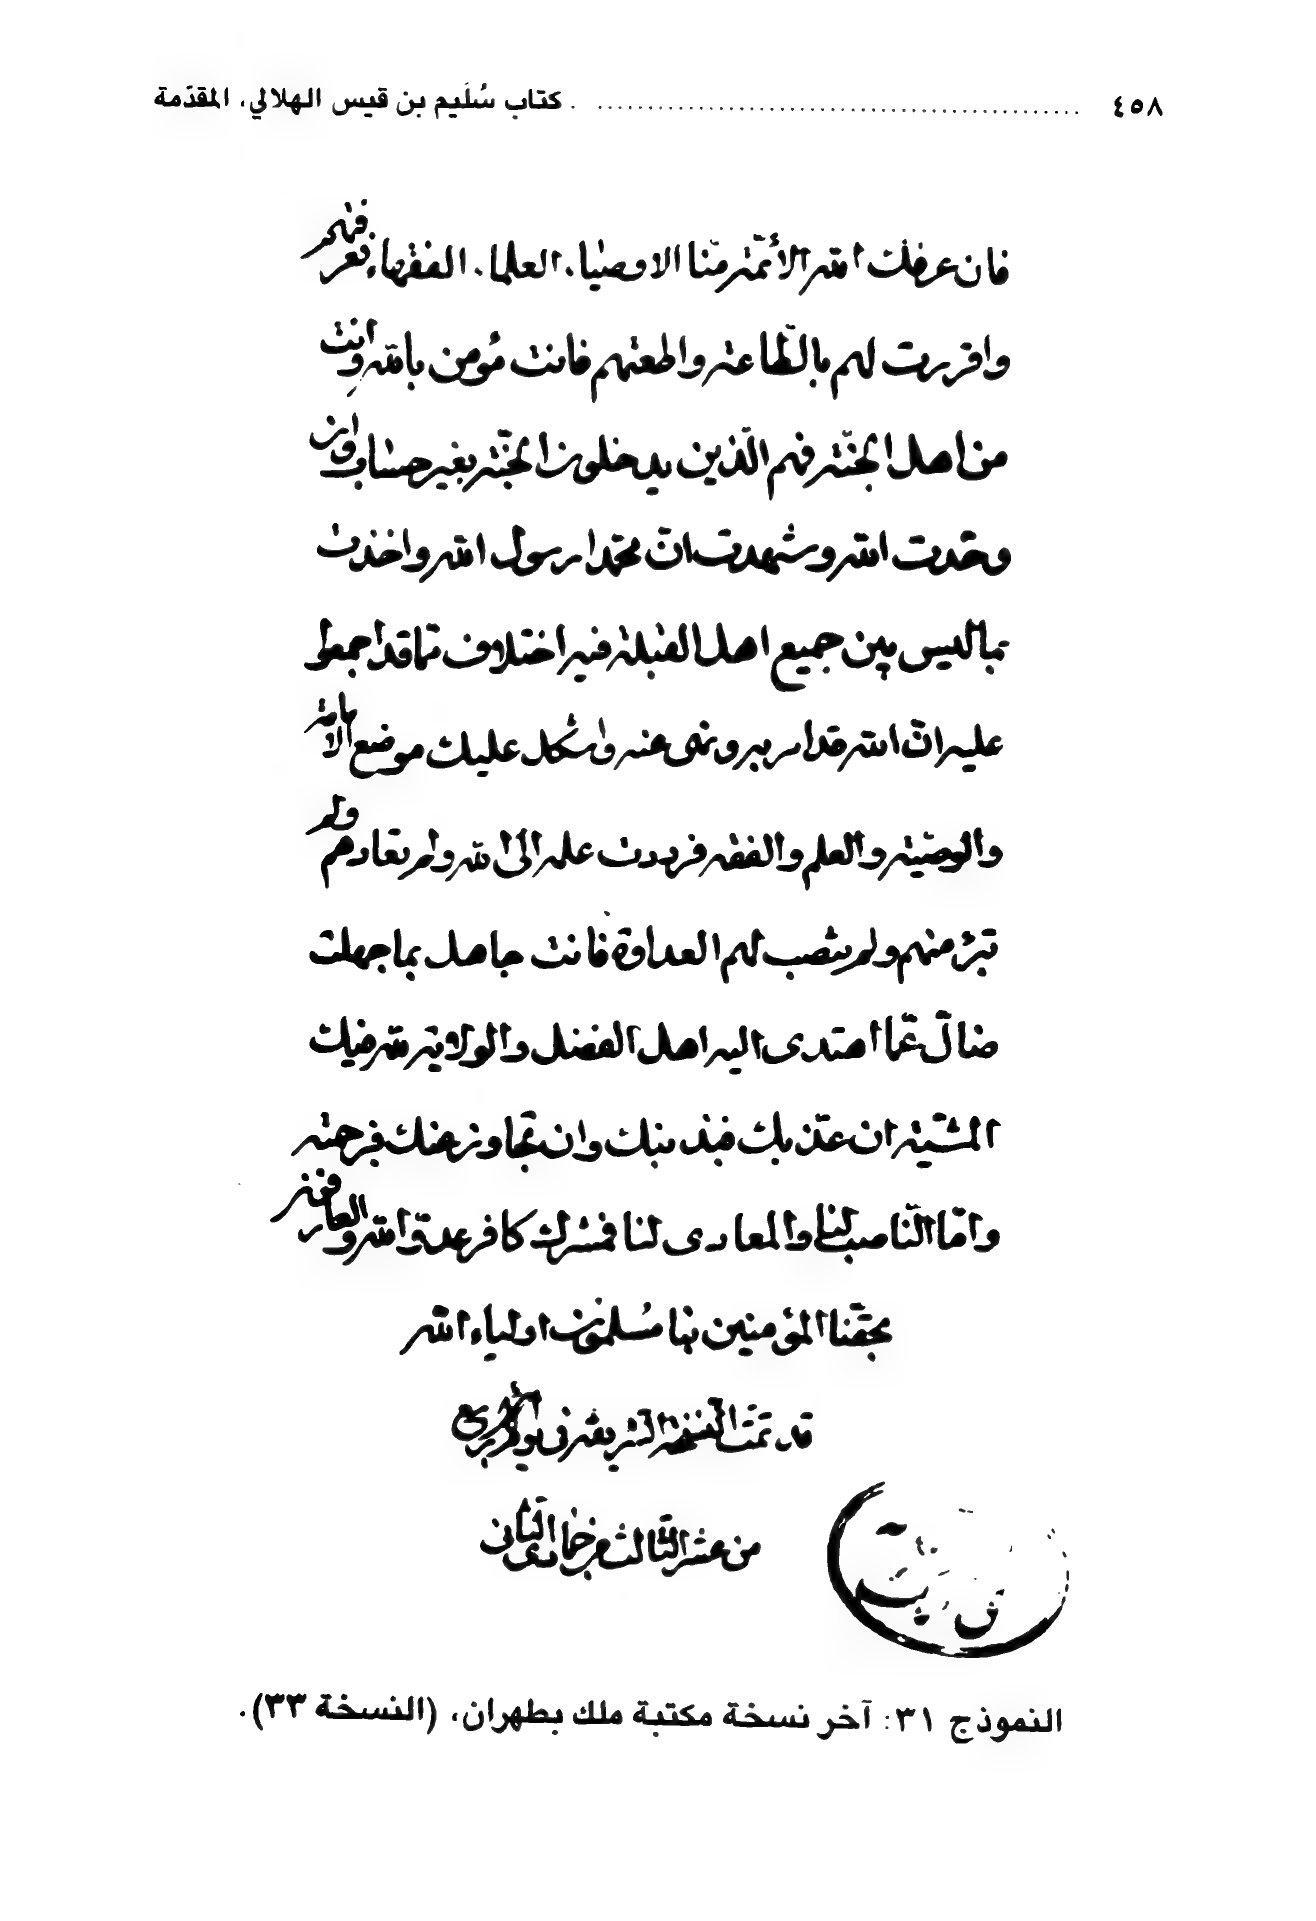 ٤٥٨ ........ كتاب سُلَيم بن قيس الهلالي، المقدّمة
فان عرفك الله الأئمّة منّا الاوصياء، العلماء، الفقهاء فعرفتهم
واقررت لهم بالطّاعة واطعتهم فانت مُؤمن بالله وانت
من اهل الجنّة فهم الّذين يدخلون الجنّة بغير حساب وان
وحّدت الله وشهدت انّ محمّدا رسول الله واخذت
بما ليس بين جميع اهل القبلة فيه اختلاف ممّا قد اجمعوا
عليه انّ الله قد امر به ونهى عنه واشكل عليك موضع الامامة
والوصيّة والعلم والفقه فرددت علمه الى الله ولم تعادهم ولم
تبرّء منهم ولم تنصب لهم العداوة فانت جاهل بما جهلت
ضالّ عمّا اهتدى اليه اهل الفضل والولاية لله فيك
المشيّة ان عذّبك فبذنبك وان تجاوز عنك فبرحمته
وامّا النّاصب لنا والمعادى لنا فمشرك كافر عدوّ الله والعارفون
بحقّنا المؤمنين بنا مُسلمون اولياء الله
قد تمّت النسخة الشريفة فى يوم
من عشر الثّالث من جمادى الثّانى
النموذج ٣١: آخر نسخة مكتبة ملك بطهران، (النسخة ٣٣).